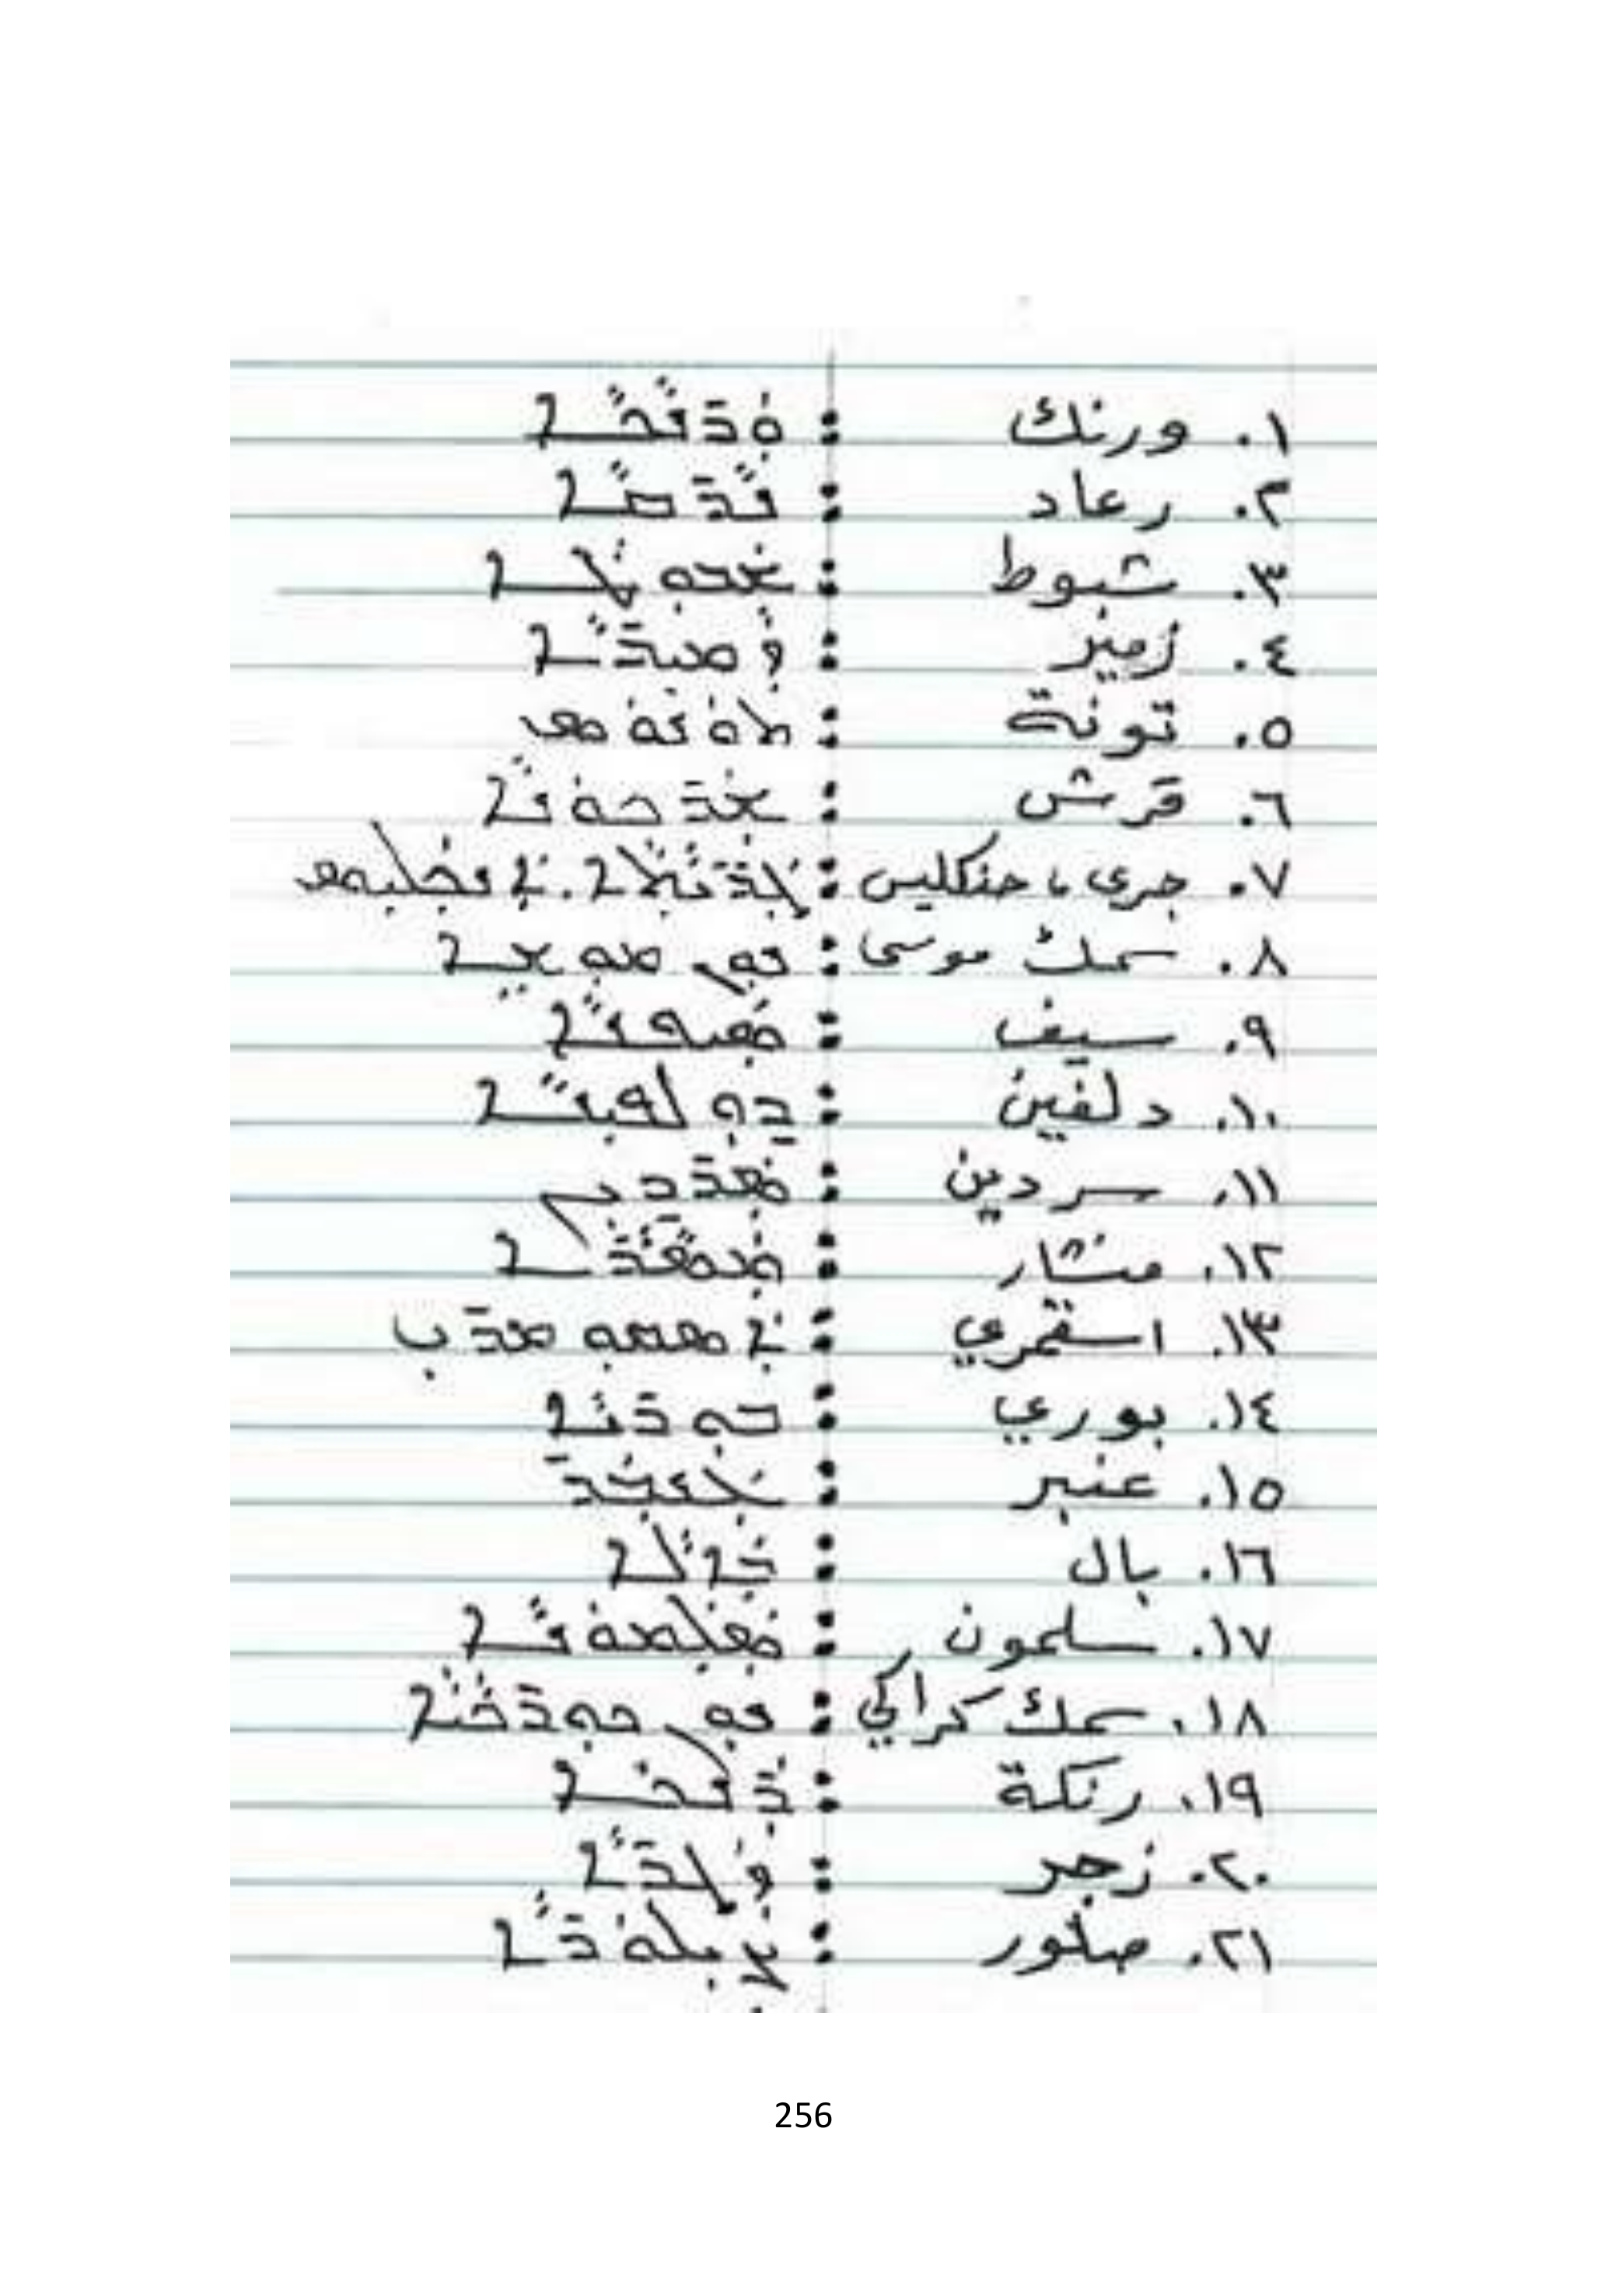 ١. ورنك : ܘܪܢܟܐ
٢. رعاد : ܢܪܡܐ
٣. شبوط : ܫܒܘܛܐ
٤. زمير : ܙܡܝܪܐ
٥. تونة : ܬܘܢܘܣ
٦. قرش : ܫܪܟܘܢܐ
٧. جري، حنكليس : ܓܪܝܬܐ . ܐܢܟܠܝܣ
٨. سمك موسى : ܢܘܢ ܡܘܫܐ
٩. سيف : ܣܝܦܢܐ
١٠. دلفين : ܕܘܠܦܝܢܐ
١١. سردين : ܣܪܕܝܢ
١٢. منشار : ܡܣܪܐ
١٣. اسقمري : ܐܣܩܘܡܪܝ
١٤. بوري : ܒܘܪܝܐ
١٥. عنبر : ܥܢܒܪ
١٦. بال : ܒܐܠܐ
١٧. سلمون : ܣܠܡܘܢܐ
١٨. سمك كراكي : ܢܘܢ ܟܘܪܟܝܐ
١٩. رنكة : ܪܢܟܐ
٢٠. زجر : ܙܓܪܐ
٢١. صلور : ܨܝܠܘܪܐ
256